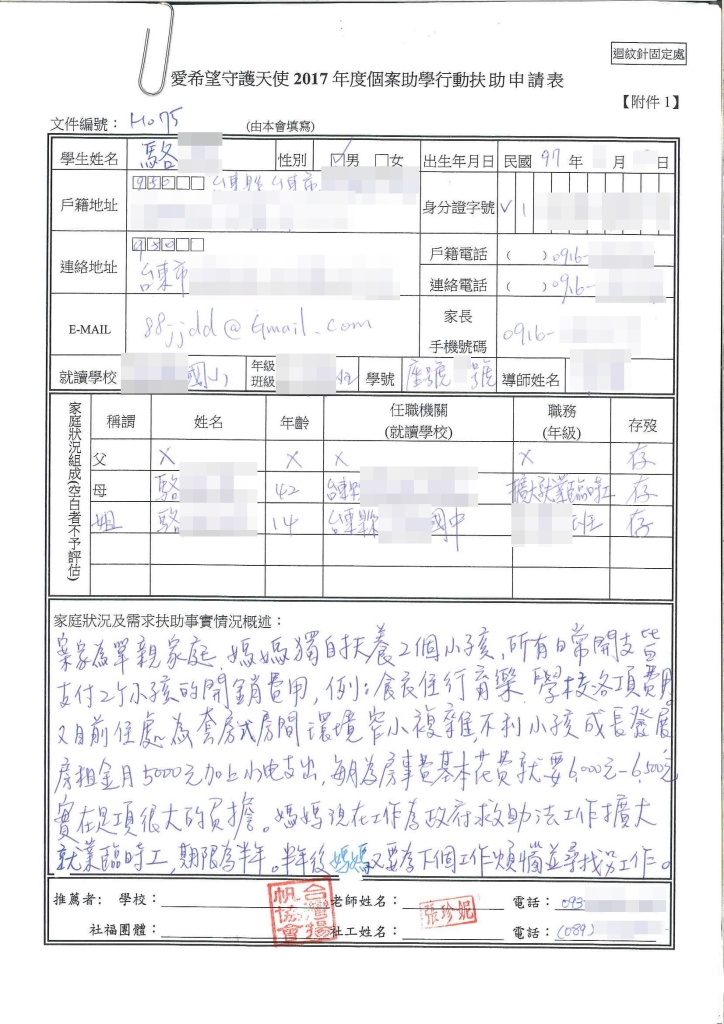 迴紋針固定處
愛希望守護天使 2017 年度個案助學行動扶助申請表
【附件 1】
文件編號： H075 (由本會填寫)
學生姓名 駱 性別 ☑男 □女 出生年月日 民國 97 年 月 日
戶籍地址 950□□ 台東縣台東市 身分證字號 V 1
連絡地址 950□□ 台東市
戶籍電話 ( ) 0916-
連絡電話 ( ) 0916-
E-MAIL 88jjdd@Gmail.com 家長手機號碼 0916-
就讀學校 國小 年級班級 班 學號 座號 號 導師姓名
家庭狀況組成(空白者不予評估)
稱謂 姓名 年齡 任職機關(就讀學校) 職務(年級) 存歿
父 X X X X 存
母 駱 42 台東縣 擴大就業臨時工 存
姐 駱 14 台東縣 國中 班 存
家庭狀況及需求扶助事實情況概述：
案家為單親家庭，媽媽獨自扶養2個小孩，所有日常開支皆
支付2個小孩的開銷費用，例：食衣住行育樂、學校各項費用。
又目前住處為套房式房間環境窄小複雜，不利小孩成長發展
房租金月5000元加上水电支出，每月為房事費基本花費就要6,000元-6,500元
實在是項很大的負擔。媽媽現在工作為政府救助法工作擴大
就業臨時工，期限為半年。半年後媽媽又要為下個工作煩惱並尋找份工作。
推薦者： 學校： 老師姓名： 電話： 093
社福團體： 社工姓名： 電話： (089)
台灣揚帆協會
張珍妮